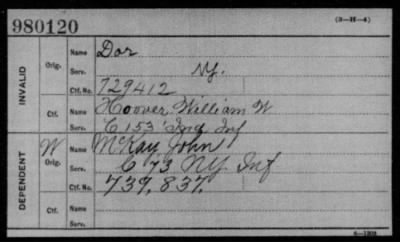 980120
(3-H-4)
INVALID
Orig.
Name Dor
Serv. NY.
Ctf. No. 729412
Ctf.
Name Hoover William W
Serv. C 153 Ind Inf
DEPENDENT
W Orig.
Name McKay John
Serv. C 73 NY Inf
Ctf. No. 739,837.
Ctf.
Name
Serv.